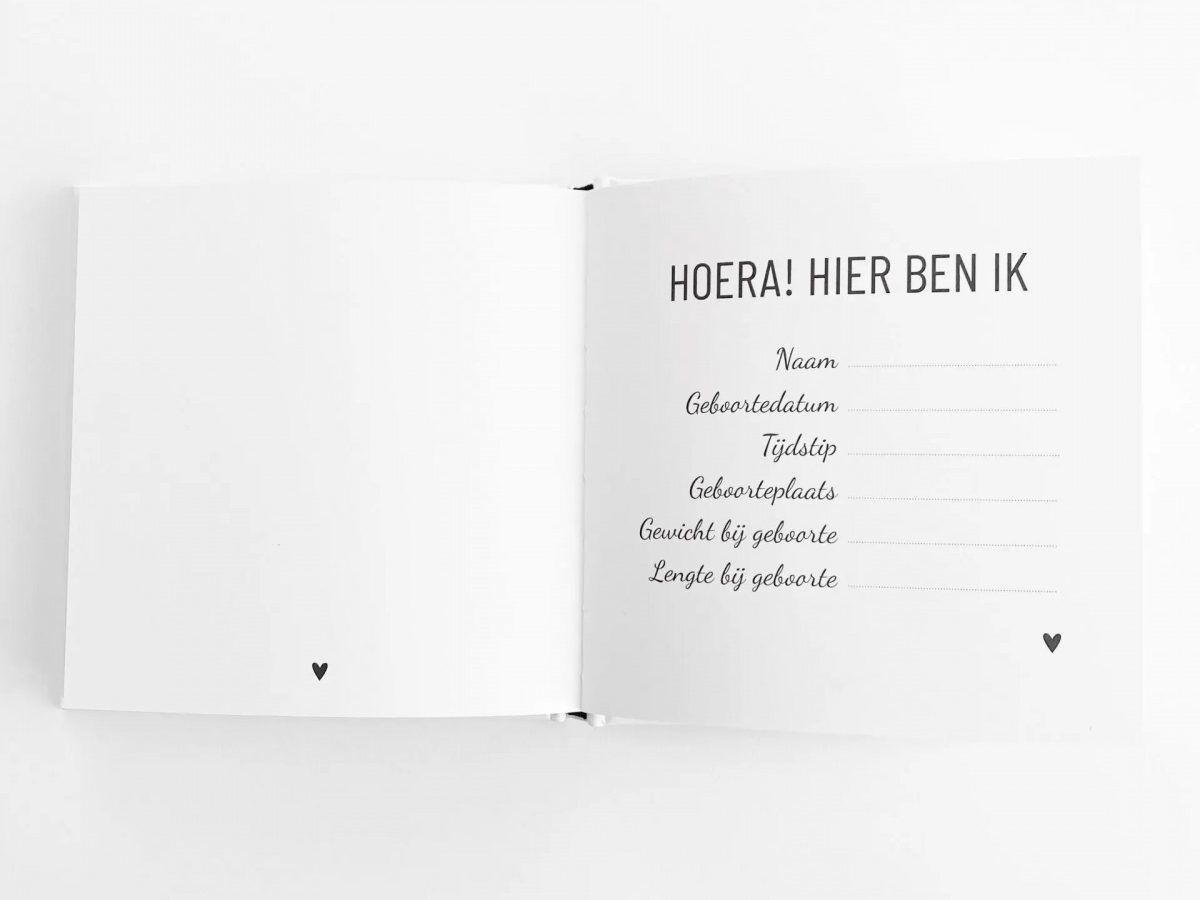 HOERA! HIER BEN IK
Naam
Geboortedatum
Tijdstip
Geboorteplaats
Gewicht bij geboorte
Lengte bij geboorte